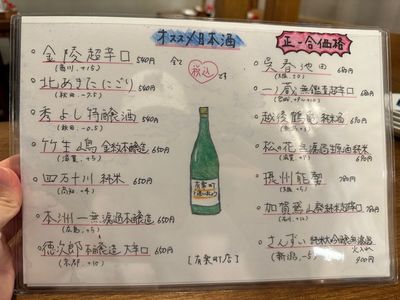 オススメ日本酒
正一合価格
全て 税込 です
金陵 超辛口 540円
(香川, +15)
北あきた にごり 540円
(秋田, -25)
秀よし 特醸酒 540円
(秋田, -0.5)
竹生嶋 金紋本醸造 650円
(滋賀, +5)
四万十川 純米 650円
(高知, +4)
本洲一 無濾過本醸造 650円
(広島, +5)
徳次郎 本醸造 大辛口 650円
(京都, +10)
呉春 池田 650円
(大阪, ±0)
一ノ蔵 無鑑査超辛口 680円
越後鶴亀 純米酒
松の花 純米
(滋賀,
摂州能勢
(大阪, +5)
加賀鳶 山廃純米超辛口
(石川, +12)
さんずい
(新潟, -5) 火入れ 900円
有楽町
[有楽町店]